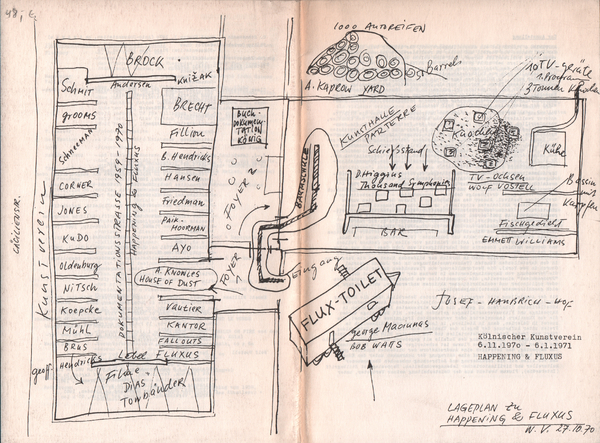 48,
CÄCILIENSTR.
Kunstverein
BROCK
Andersen
KNIŽAK
Schmit
GROOMS
Schneeman
CORNER
JONES
KUDO
Oldenburg
NITSCH
Koepcke
MÜHL
BRUS
Geoff.
Hendricks
DOKUMENTATIONSTRASSE 1959-1970
HAPPENING & FLUXUS
BRECHT
Filliou
B. Hendricks
HANSEN
Friedman
PAIK-
MOORMAN
AYO
A. KNOWLES
HOUSE OF DUST
Vautier
KANTOR
FALLOUTS
FLUXUS
Label
Filme
DIAS
Tonbänder
BUCH-
DOKUMEN-
TATION
KÖNIG
FOYER 2
FOYER 1
BAUMSCHULE
Eingang
1000 AUTOREIFEN
Barrels
A. Kaprow YARD
KUNSTHALLE
PARTERRE
Schießstand
D. Higgins
Thousand Symphonies
BAR
10 TV-geräte
3 Tonnen
Knochen
TV-OCHSEN
WOLF VOSTELL
Kühe
Bassin
mit
Karpfen
Fischgedicht
EMMETT WILLIAMS
FLUX-TOILET
George Maciunas
BOB WATTS
JOSEF-HAUBRICH-HOF
Kölnischer Kunstverein
6.11.1970 - 6.1.1971
HAPPENING & FLUXUS
LAGEPLAN zu
HAPPENING & FLUXUS
W. V. 27.10.70